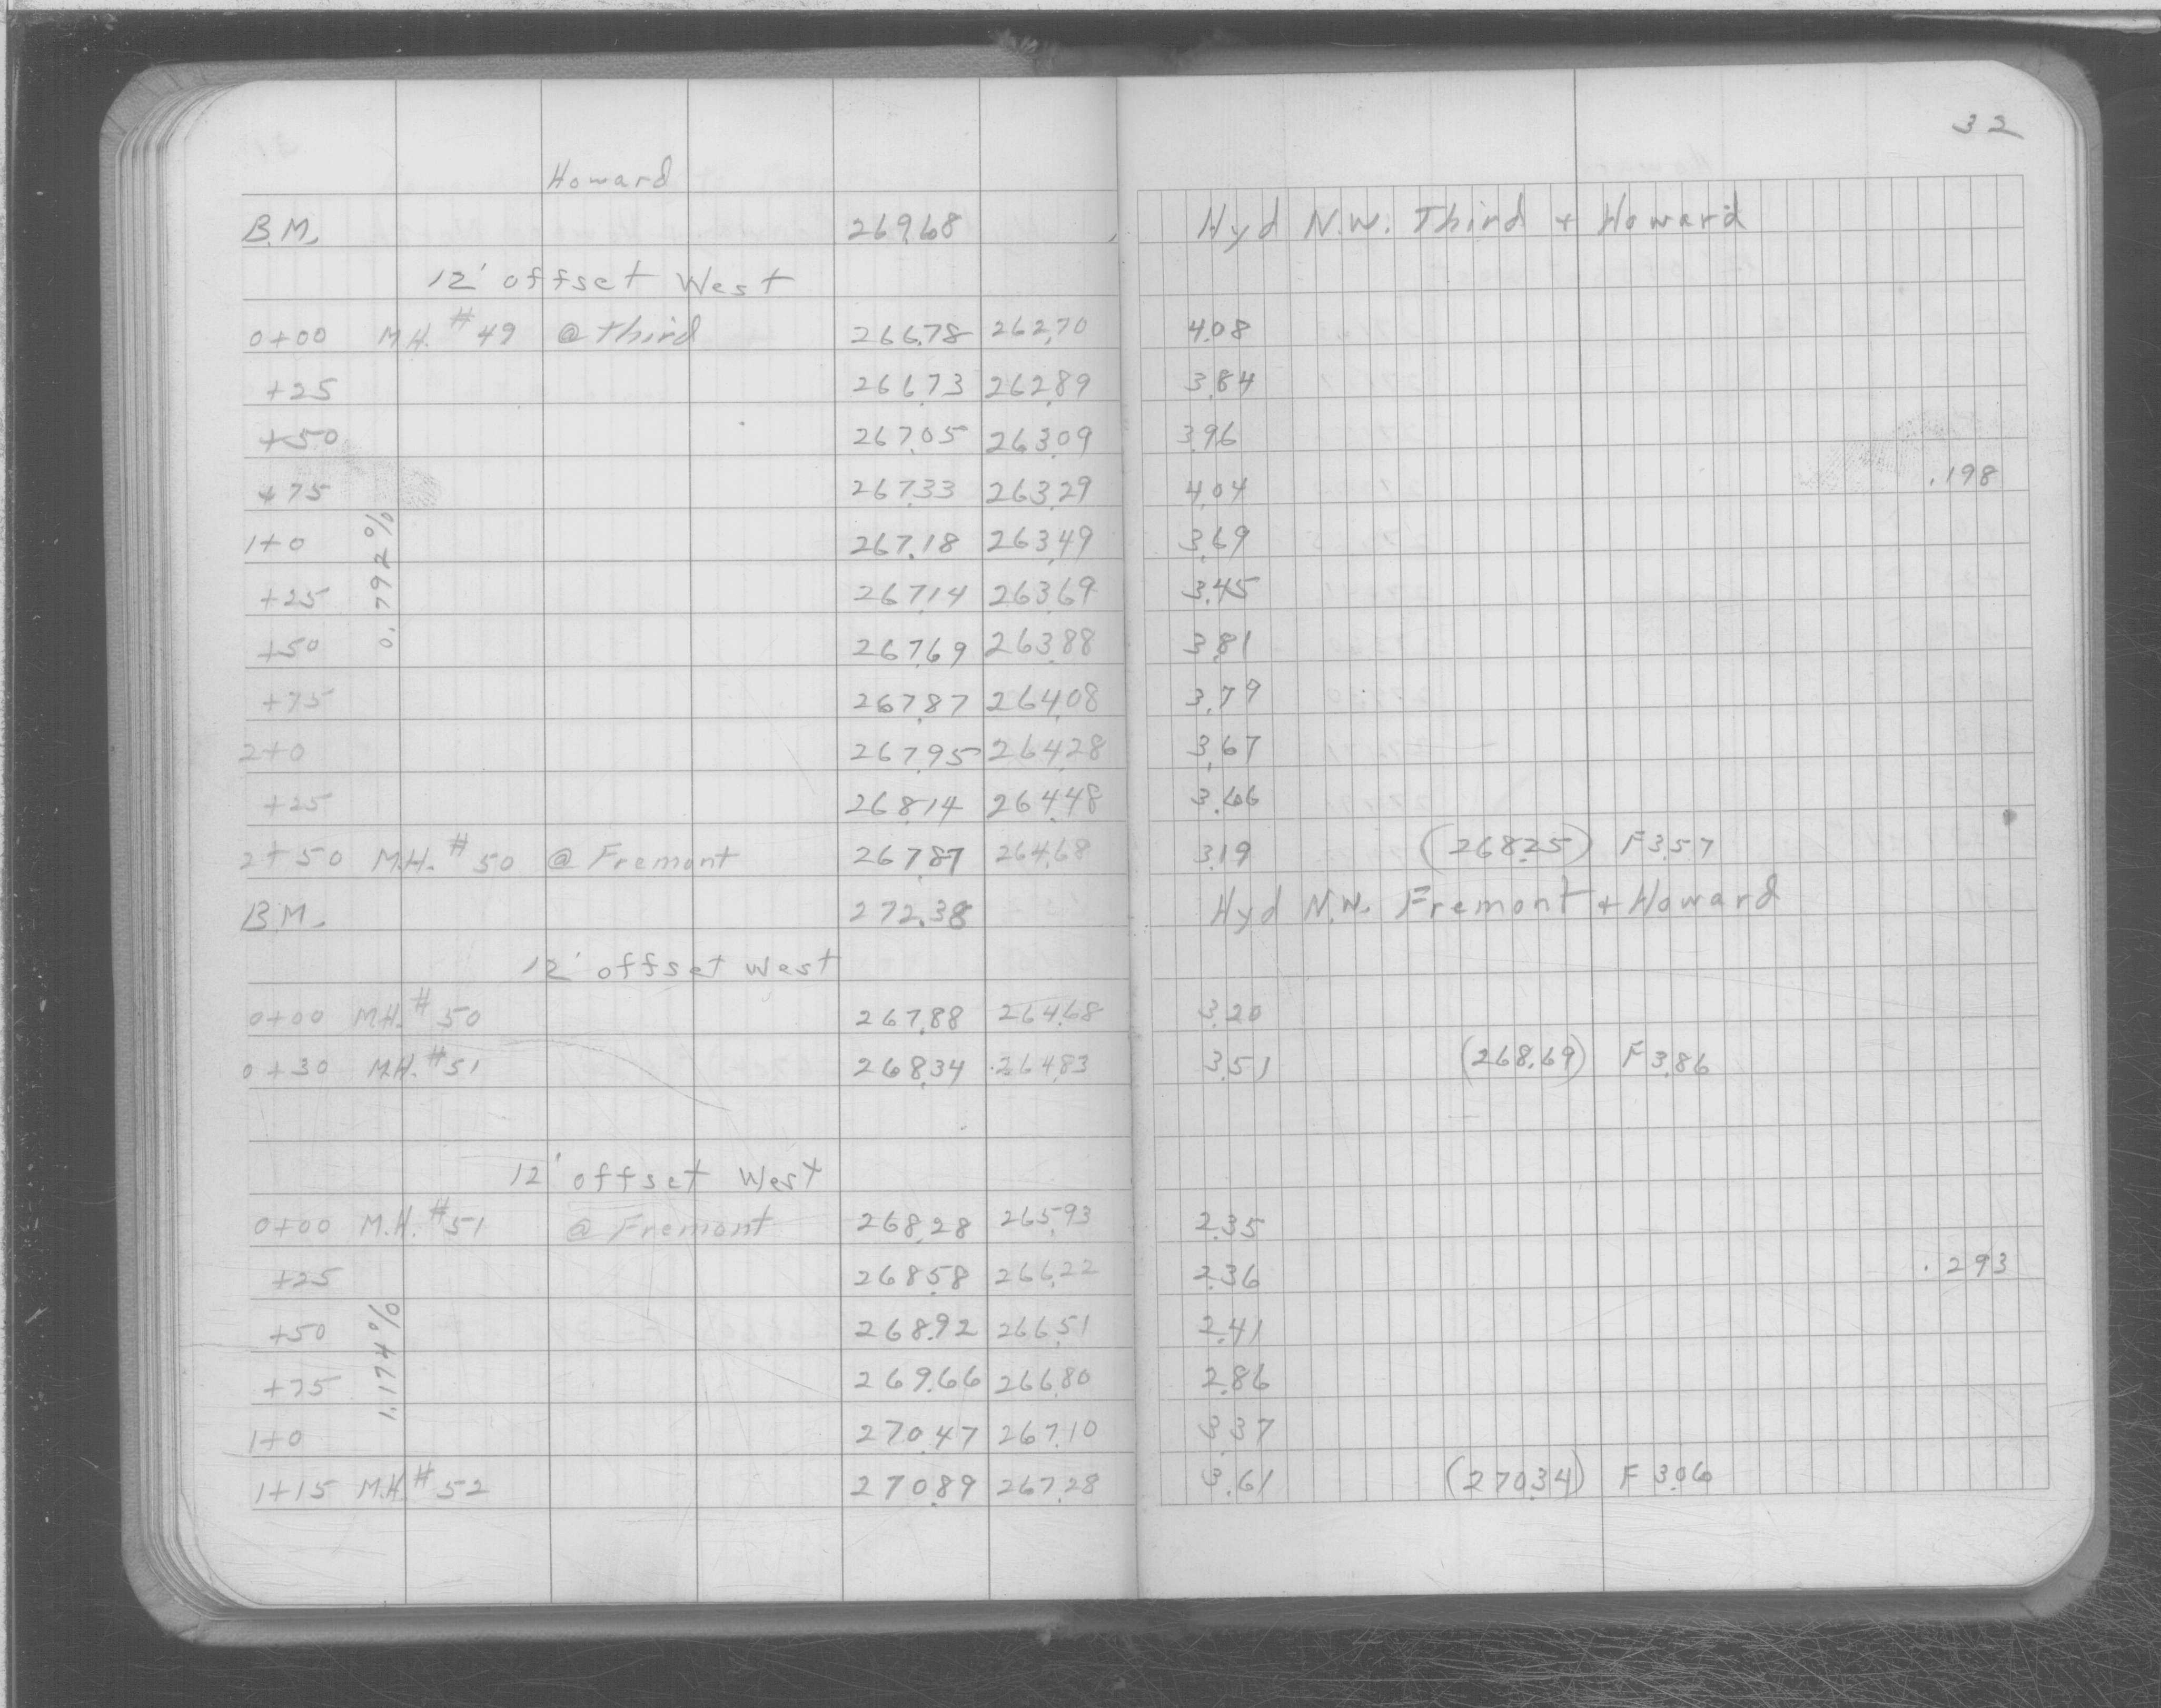 32
Howard
B.M. 269.68 Hyd N.W. Third + Howard
12' offset West
0+00 M.H. #49 @ Third 266.78 262.70 4.08
+25 266.73 262.89 3.84
+50 267.05 263.09 3.96
+75 267.33 263.29 4.04 .198
1+0 267.18 263.49 3.69
0.792%
+25 267.14 263.69 3.45
+50 267.69 263.88 3.81
+75 267.87 264.08 3.79
2+0 267.95 264.28 3.67
+25 268.14 264.48 3.66
2+50 M.H. #50 @ Fremont 267.87 264.68 3.19 (268.25) F 3.57
B.M. 272.38 Hyd N.W. Fremont + Howard
12' offset west
0+00 M.H. #50 267.88 264.68 3.20
0+30 M.H. #51 268.34 264.83 3.51 (268.69) F 3.86
12' offset West
0+00 M.H. #51 @ Fremont 268.28 265.93 2.35
+25 268.58 266.22 2.36 .293
+50 268.92 266.51 2.41
1.174%
+75 269.66 266.80 2.86
1+0 270.47 267.10 3.37
1+15 M.H. #52 270.89 267.28 3.61 (270.34) F 3.06